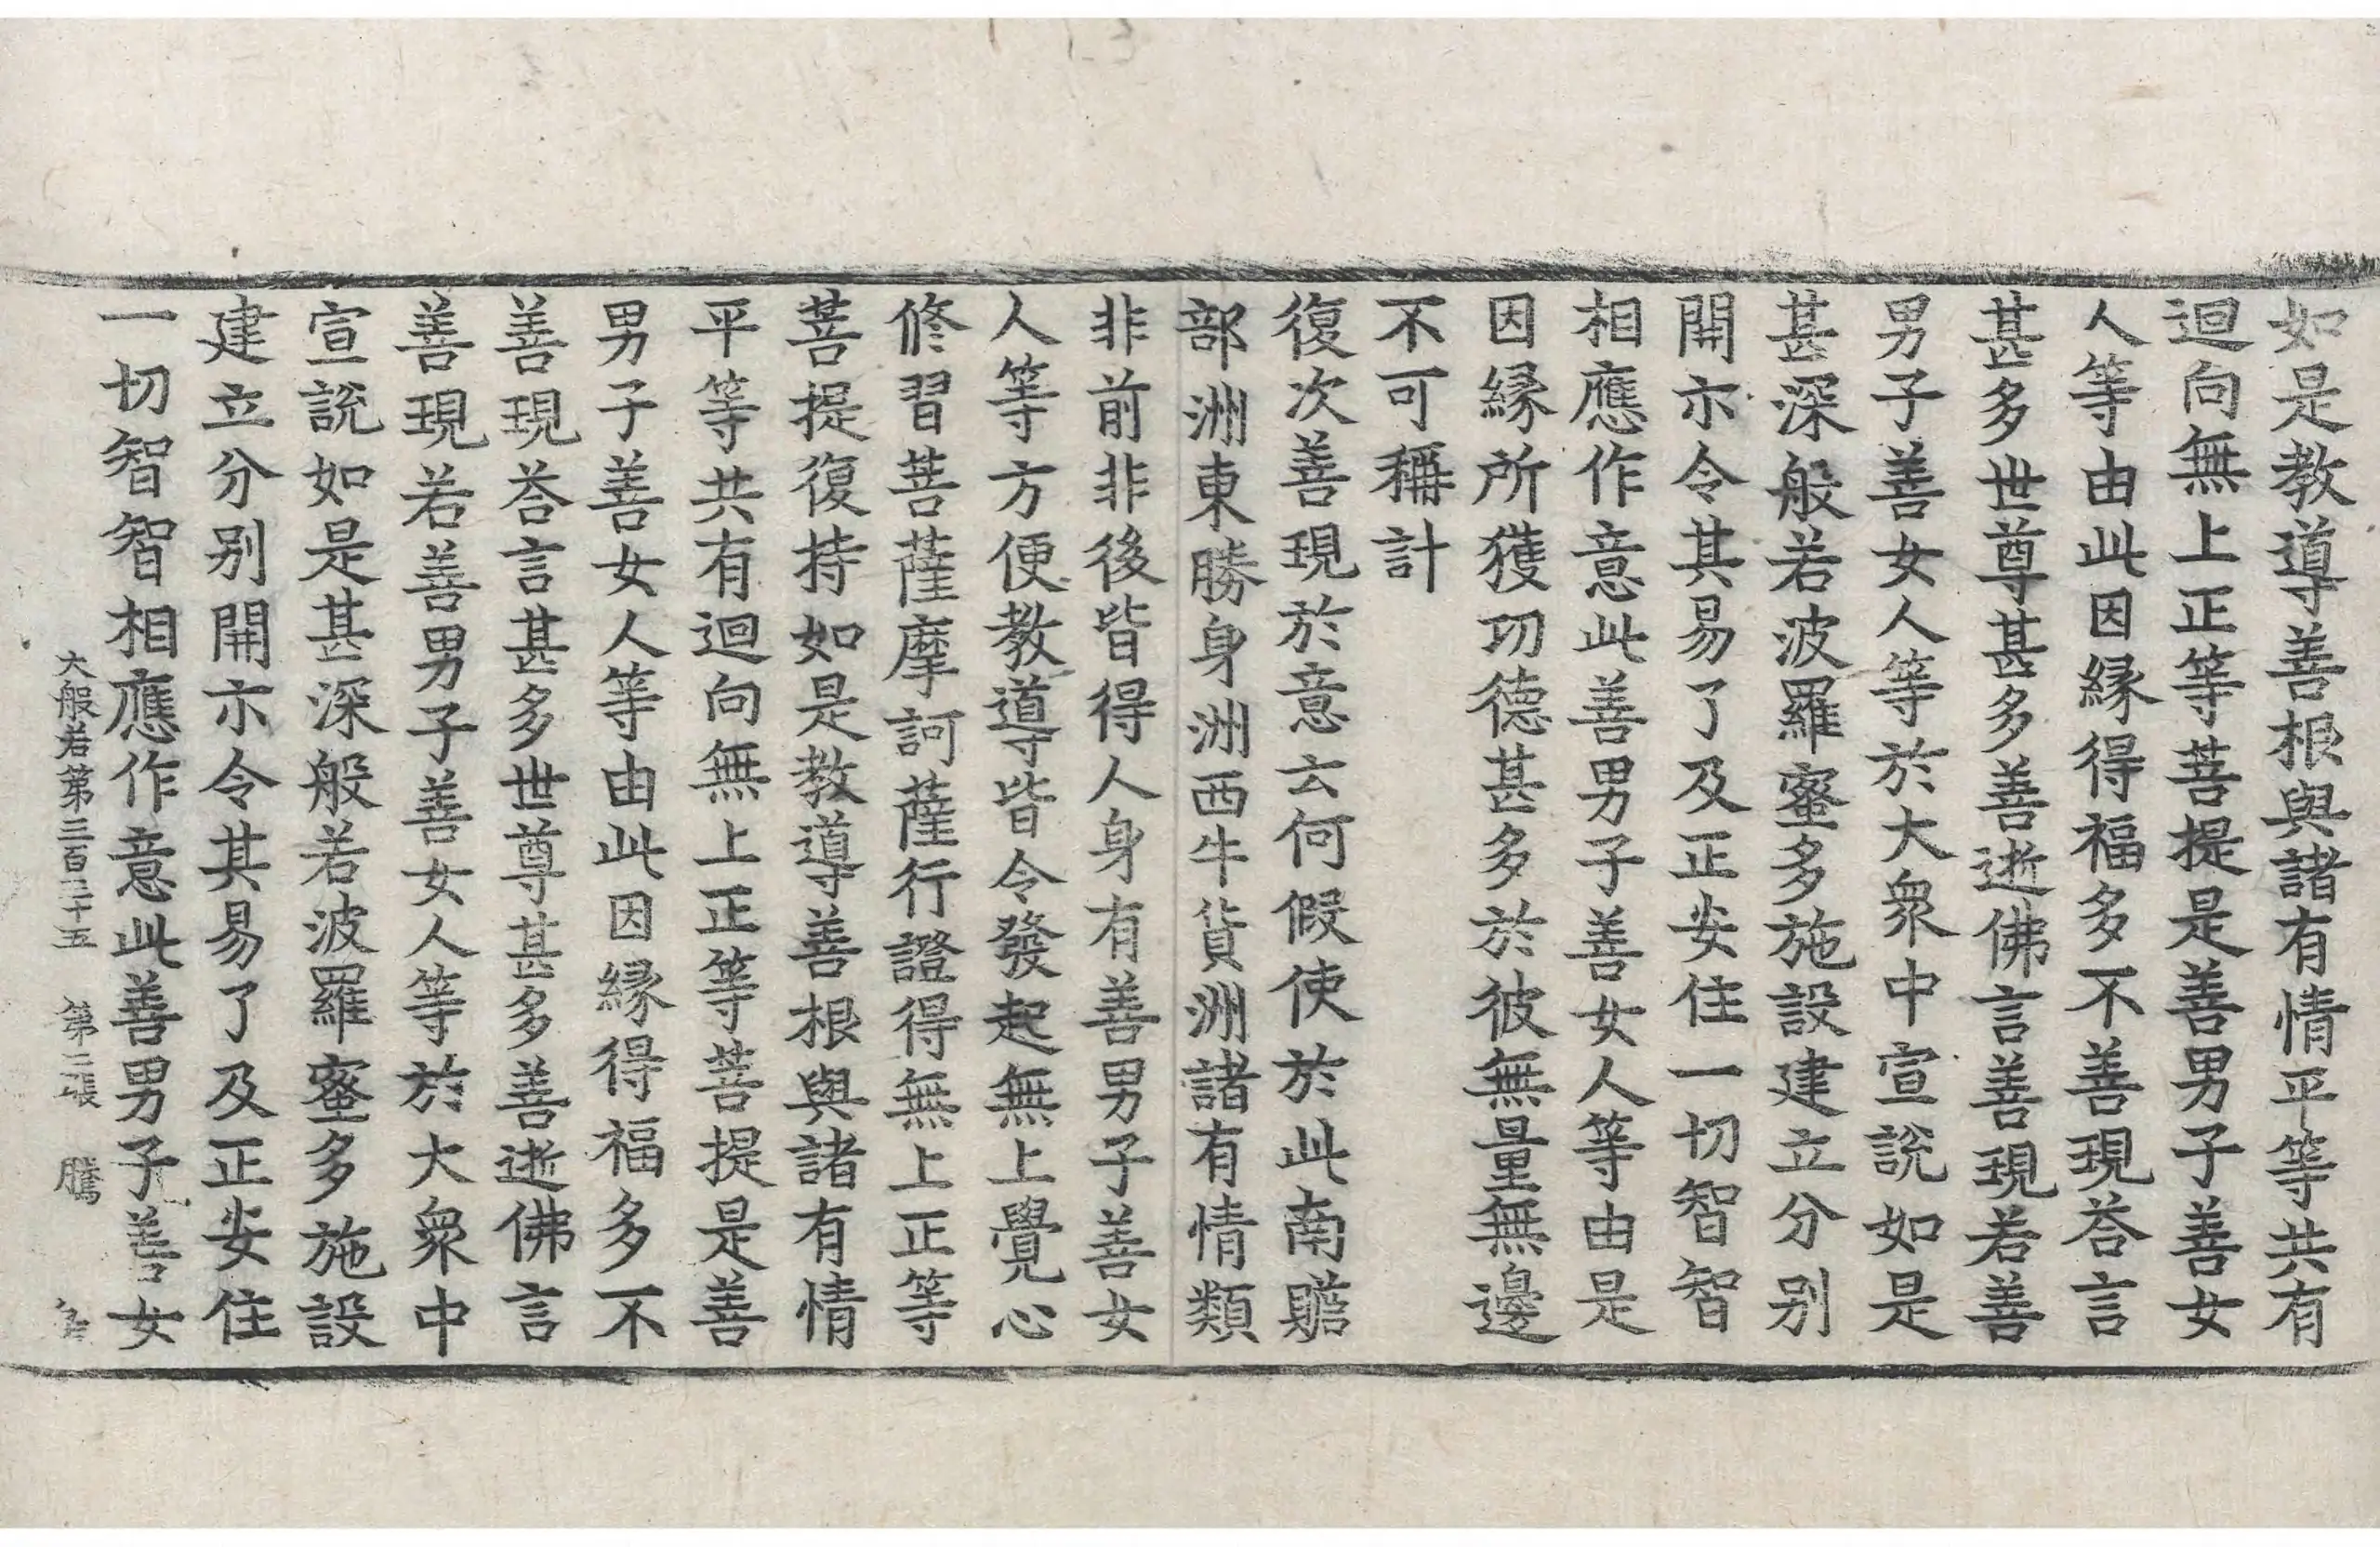 如是教導善根與諸有情平等共有
迴向無上正等菩提是善男子善女
人等由此因縁得福多不善現荅言
甚多世尊甚多善逝佛言善現若善
男子善女人等於大衆中宣說如是
甚深般若波羅蜜多施設建立分别
開示令其易了及正安住一切智智
相應作意此善男子善女人等由是
因縁所獲功德甚多於彼無量無邊
不可稱計
復次善現於意云何假使於此南贍
部洲東勝身洲西牛貨洲諸有情類
非前非後皆得人身有善男子善女
人等方便教導皆令發起無上覺心
修習菩薩摩訶薩行證得無上正等
菩提復持如是教導善根與諸有情
平等共有迴向無上正等菩提是善
男子善女人等由此因縁得福多不
善現荅言甚多世尊甚多善逝佛言
善現若善男子善女人等於大衆中
宣說如是甚深般若波羅蜜多施設
建立分别開示令其易了及正安住
一切智智相應作意此善男子善女
大般若第三百三十五 第二張 騰